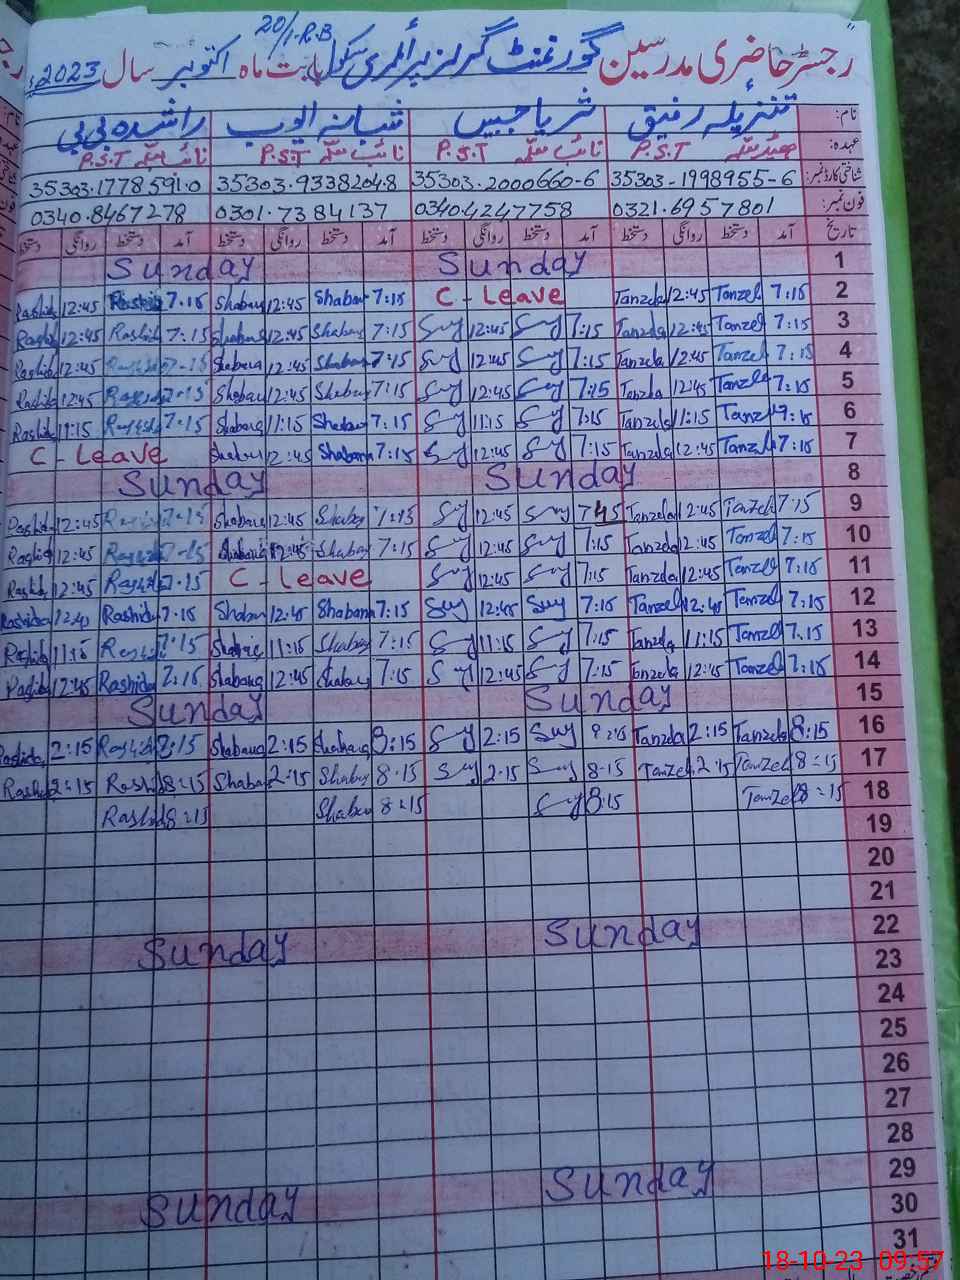 20/1-R.B
رجسٹر حاضری مدرسین گورنمنٹ گرلز پرائمری سکول بابت ماہ اکتوبر سال 2023ء
نام: تنزیلہ رفیق ثریا جبیں شبانہ ایوب راشدہ بی بی
عہدہ: P.S.T نائب P.S.T نائب P.S.T نائب P.S.T
شناختی کارڈ نمبر: 35303-1998955-6 35303.2000660-6 35303.9338204.8 35303.1778591.0
فون نمبر: 0321.6957801 0340.4247758 0301.7384137 0340.8467278
تاریخ آمد دستخط روانگی دستخط آمد دستخط روانگی دستخط آمد دستخط روانگی دستخط آمد دستخط روانگی دستخط
Sunday Sunday 1
Rashid 12:45 Rashid 7:15 Shabana 12:45 Shabana 7:15 C - Leave Tanzela 12:45 Tanzel 7:15 2
Rashid 12:45 Rashid 7:15 Shabana 12:45 Shabana 7:15 12:45 7:15 Tanzela 12:45 Tanzel 7:15 3
Rashid 12:45 7-15 Shabana 12:45 Shabana 7:15 12:45 7:15 Tanzela 12:45 Tanzel 7:15 4
Rashid 12:45 7-15 Shabana 12:45 Shabana 7:15 12:45 7:15 Tanzela 12:45 Tanzela 7:15 5
Rashid 11:15 7-15 Shabana 11:15 Shabana 7:15 11:15 7:15 Tanzela 11:15 Tanzel 7:15 6
C - Leave Shabana 12:45 Shabana 7:15 12:45 7:15 Tanzela 12:45 Tanzel 7:15 7
Sunday Sunday 8
Rashid 12:45 7-15 Shabana 12:45 Shabana 7:15 12:45 7 45 Tanzela 12:45 Tanzel 7:15 9
Rashid 12:45 7-15 Shabana 12:45 Shabana 7:15 12:45 7:15 Tanzela 12:45 Tanzel 7:15 10
Rashid 12:45 7-15 C - Leave 12:45 7:15 Tanzela 12:45 Tanzel 7:15 11
Rashida 12:45 Rashida 7:15 Shabana 12:45 Shabana 7:15 12:45 7:15 Tanzel 12:45 Tanzel 7:15 12
Rashid 11:15 7:15 Shabana 11:15 Shabana 7:15 11:15 7:15 Tanzela 11:15 Tanzel 7:15 13
Rashid 12:45 Rashida 7:15 Shabana 12:45 Shabana 7:15 12:45 7:15 Tanzela 12:45 Tanzel 7:15 14
Sunday Sunday 15
Rashida 2:15 Rashid 8:15 Shabana 2:15 Shabana 8:15 2:15 8:15 Tanzela 2:15 Tanzela 8:15 16
Rashid 2:15 Rashid 8=15 Shabana 2:15 Shabana 8.15 2.15 8.15 Tanzel 2:15 Tanzel 8=15 17
Rashid 8=15 Shabana 8=15 8:15 Tanzel 8=15 18
19
20
21
Sunday Sunday 22
23
24
25
26
27
28
Sunday Sunday 29
30
31
18-10-23 09:57